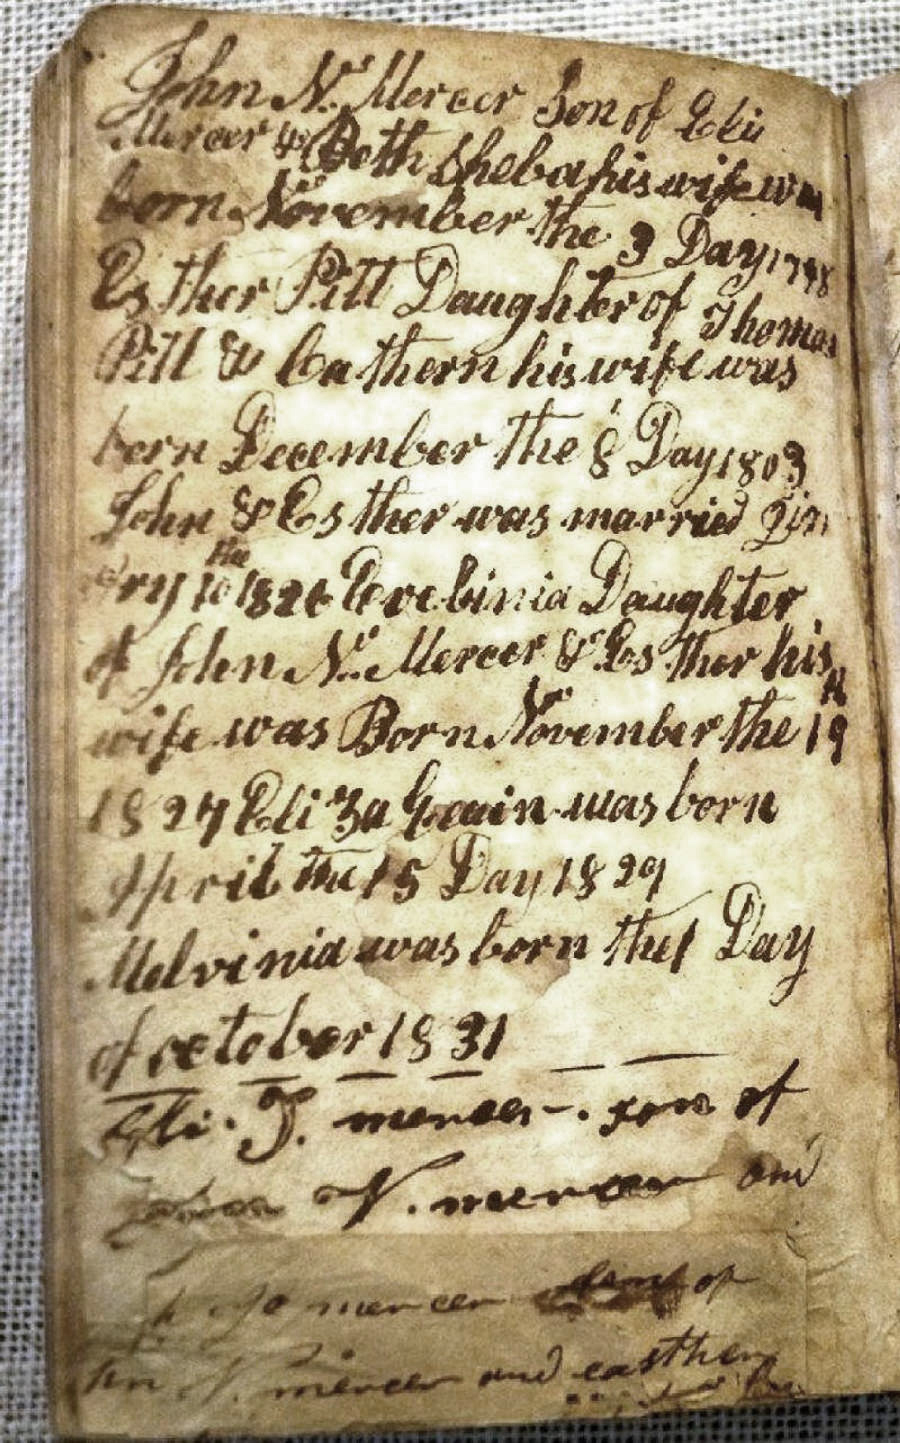 John N. Mercer Son of Eli
Mercer & Beth Sheba his wife was
born November the 3 Day 1798
Esther Pitt Daughter of Thomas
Pitt & Cathern his wife was
born December the 8 Day 1803
John & Esther was married
ery 10 the 1826 Daughter
of John N. Mercer & Esther his
wife was Born November the 19 th
1827 Eliza was born
April the 15 Day 1829
Melvinia was born the 1 Day
of october 1831
Eli. T. mercer - . son of
N. mercer and
mercer of
N. mercer and easthem